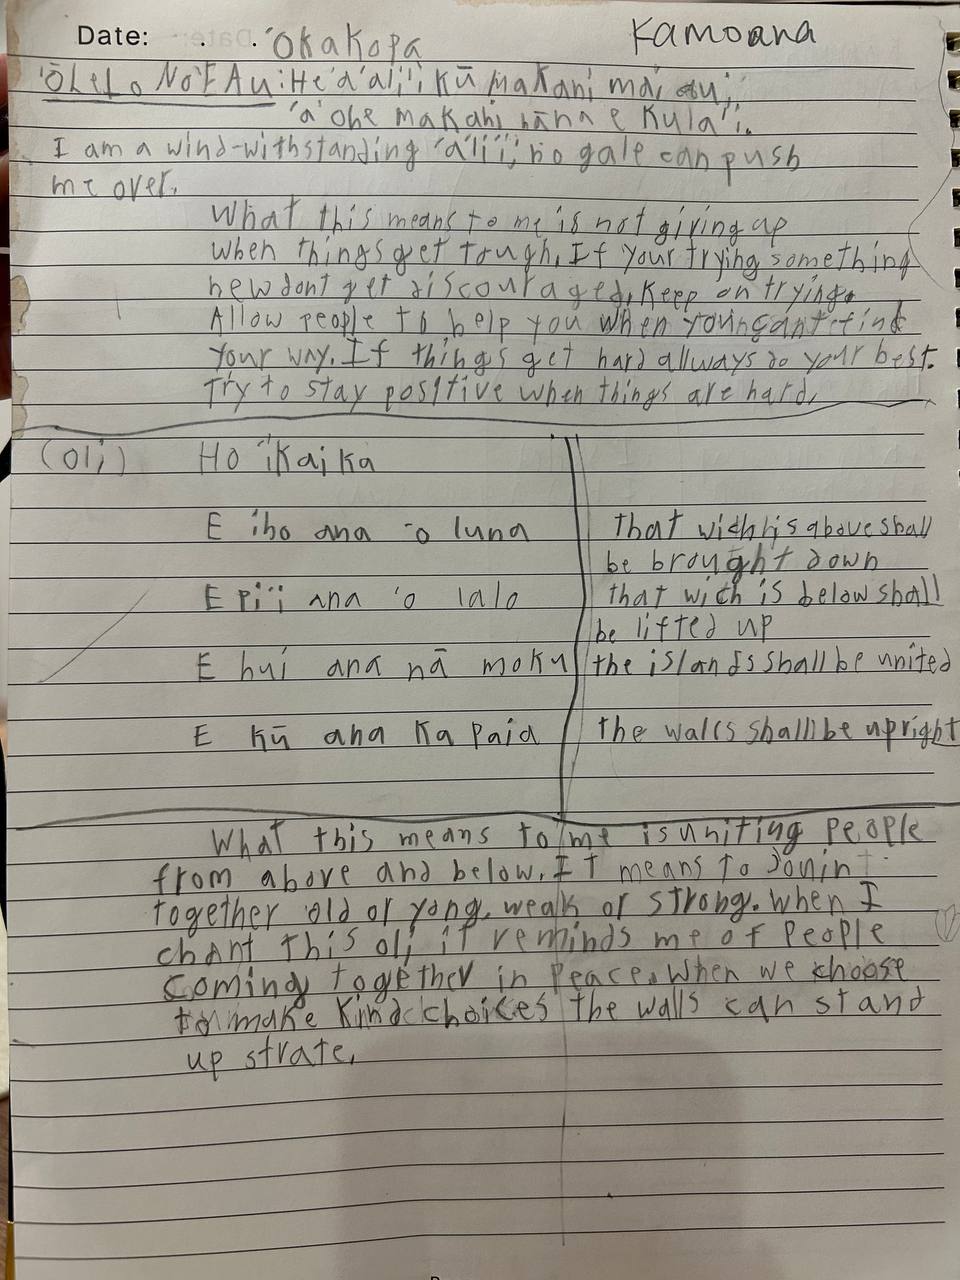 Date: . . 'Okakopa Kamoana
'ŌLELO NO'EAU: He 'a'ali'i Kū Makani mai au;
'a'ohe makani nāna e kula'i.
I am a wind-withstanding 'a'ali'i; no gale can push
me over.
What this means to me is not giving up
when things get tough. If your trying something
new dont get discouraged, Keep on trying.
Allow people to help you when you cant find
your way. If things get hard allways do your best.
Try to stay positive when things are hard.
(Oli) Ho'ikaika
E iho ana 'o luna that wich is above shall
be brought down
E pi'i ana 'o lalo that wich is below shall
be lifted up
E hui ana nā moku the islands shall be united
E kū ana ka paia the walls shall be upright
What this means to me is uniting people
from above and below. It means to Jouin
together old or yong, weak or strong. When I
chant this oli it reminds me of people
coming together in peace. When we choose
to make kind choices the walls can stand
up strate.